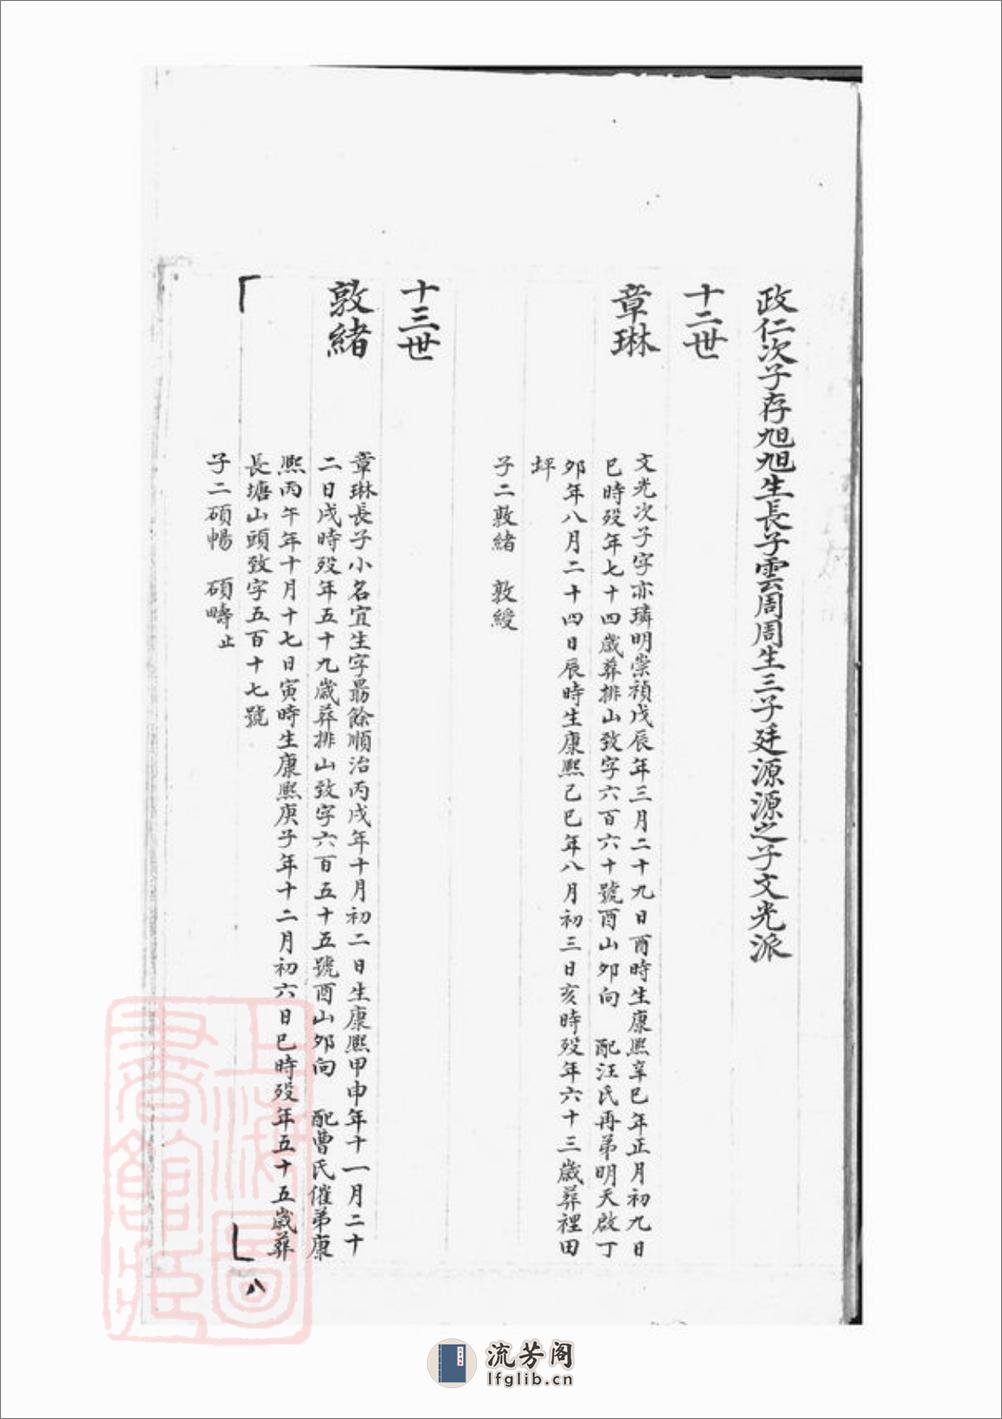 政仁次子存旭旭生長子雲周周生三子廷源源之子文光派
十二世
章琳
文光次子字亦璘明崇禎戊辰年三月二十九日酉時生康熙辛巳年正月初九日
巳時殁年七十四歲葬排山致字六百六十號酉山夘向 配汪氏再弟明天啟丁
夘年八月二十四日辰時生康熙己巳年八月初三日亥時殁年六十三歲葬裡田
坪
子二敦緒 敦綬
十三世
敦緒
章琳長子小名宜生字勗餘順治丙戌年十月初二日生康熙甲申年十一月二十
二日戌時殁年五十九歲葬排山致字六百五十五號酉山夘向 配曹氏催弟康
熙丙午年十月十七日寅時生康熙庚子年十二月初六日巳時殁年五十五歲葬
長塘山頭致字五百十七號
子二碩暢 碩疇止
八
上海圖
書館藏
流芳阁
lfglib.cn